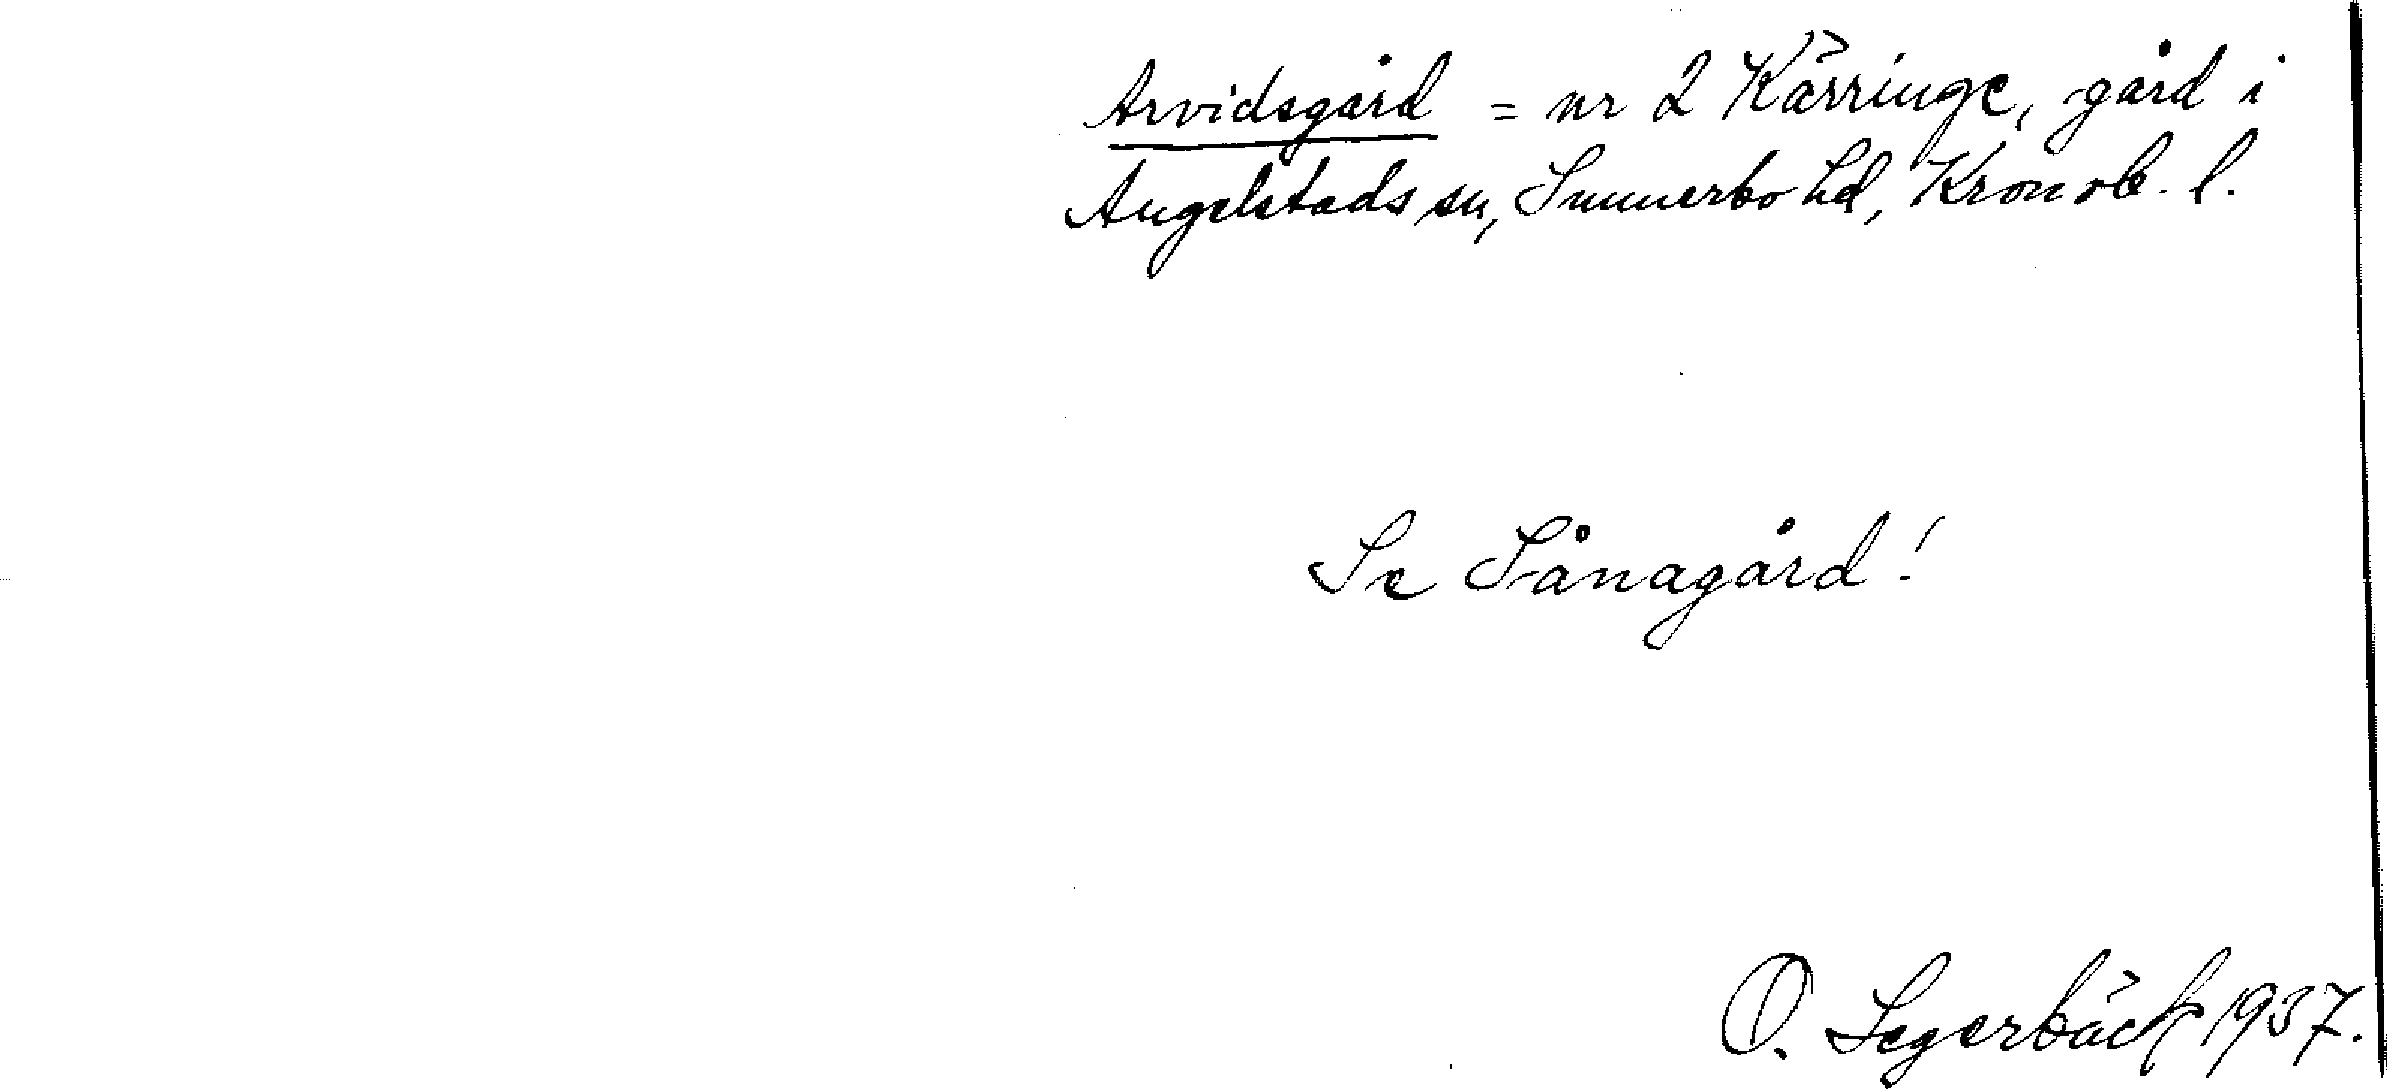 Arvidsgård = nr 2 Kärringe, gård i
Angelstads sn, Sunnerbo hd, Kronob. l.
Se Sånagård!
O. Segerbäck 1937.